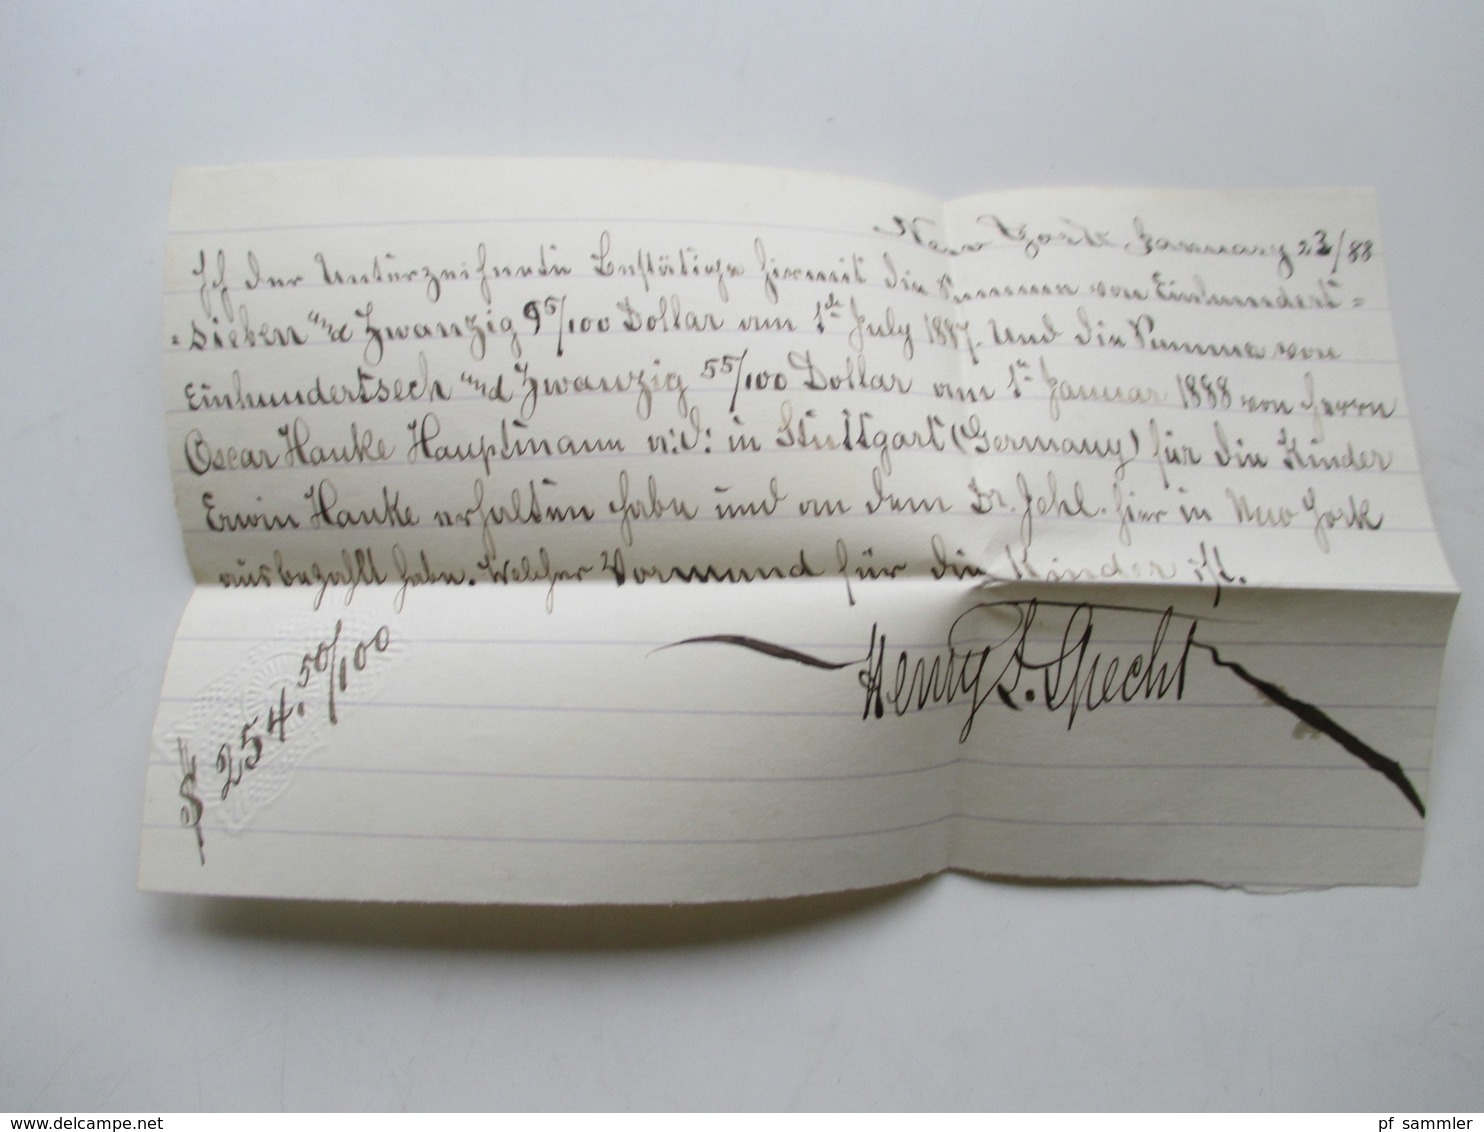 New York January 23/88
Ich der Unterzeichnete Bestätige hiermit die Summen von Einhundert=
=sieben und Zwanzig 95/100 Dollar am 1te July 1887. Und die Summe von
Einhundertsech und Zwanzig 55/100 Dollar am 1te Januar 1888 von Herrn
Oscar Hauke Hauptmann a: d: in Stuttgart (Germany) für die Kinder
Erwin Hauke erhalten habe und an dem Dr. Jehl. hier in New York
ausbezahlt habe. Welcher Vormund für die Kinder ist.
Henry L. Specht
$ 254. 50/100
www.delcampe.net
pf_sammler